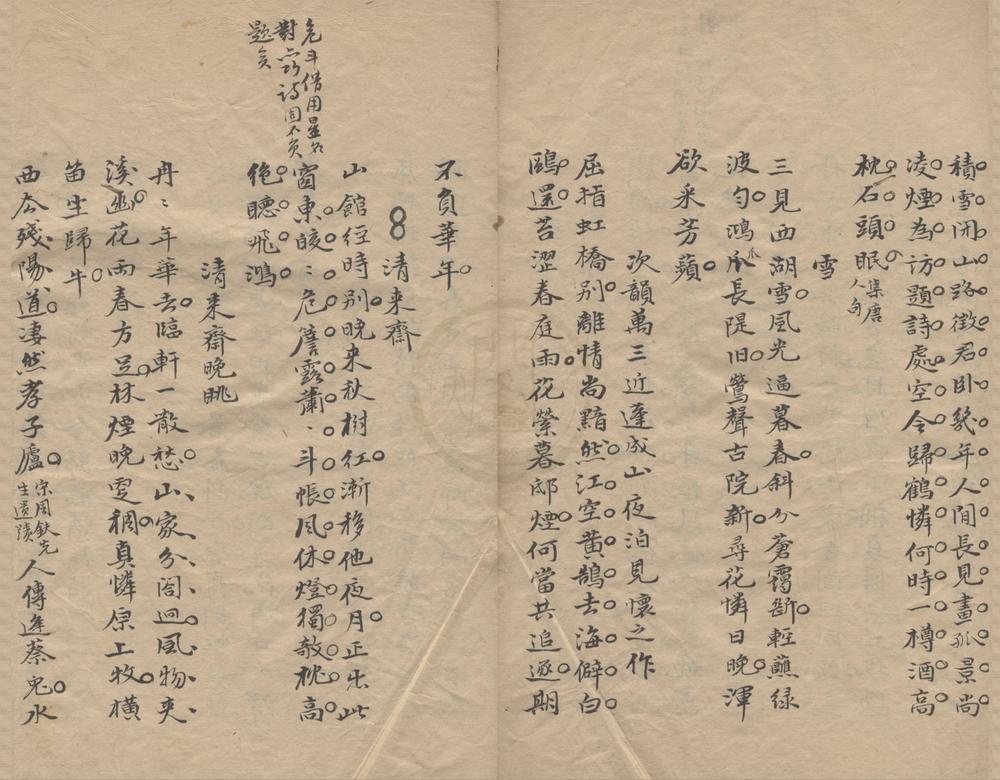 積雪閉山路徵君臥幾年人間長見畫孤景尚
凌煙為訪題詩處空令歸鶴憐何時一樽酒高
枕石頭眠集唐人句
雪
三見西湖雪風光逼暮春斜分蒼靄斷輕蘸綠
波勻鴻爪長隄旧鶯聲古院新尋花憐日晚渾
欲采芳蘋
次韻萬三近蓬成山夜泊見懷之作
屈指虹橋別離情尚黯然江空黄鵠去海僻白
鷗還苔澀春庭雨花縈暮邸煙何當共追逐期
不負華年
8 清来齋
山館經時別晚来秋樹紅漸移他夜月正出此
窗東皎〻危簷露肅〻斗帳風休燈獨欹枕高
絶聽飛鴻
危斗借用星名
對窃詩固不負
題矣
清来齋晚眺
冉〻年華去臨軒一散愁山家分閤迥風物夾
溪幽花雨春方足林煙晚更稠真憐原上牧橫
笛生歸牛
西厺殘陽道淒然孝子廬宗周鉄先生遺蹟人傳逢蔡鬼水